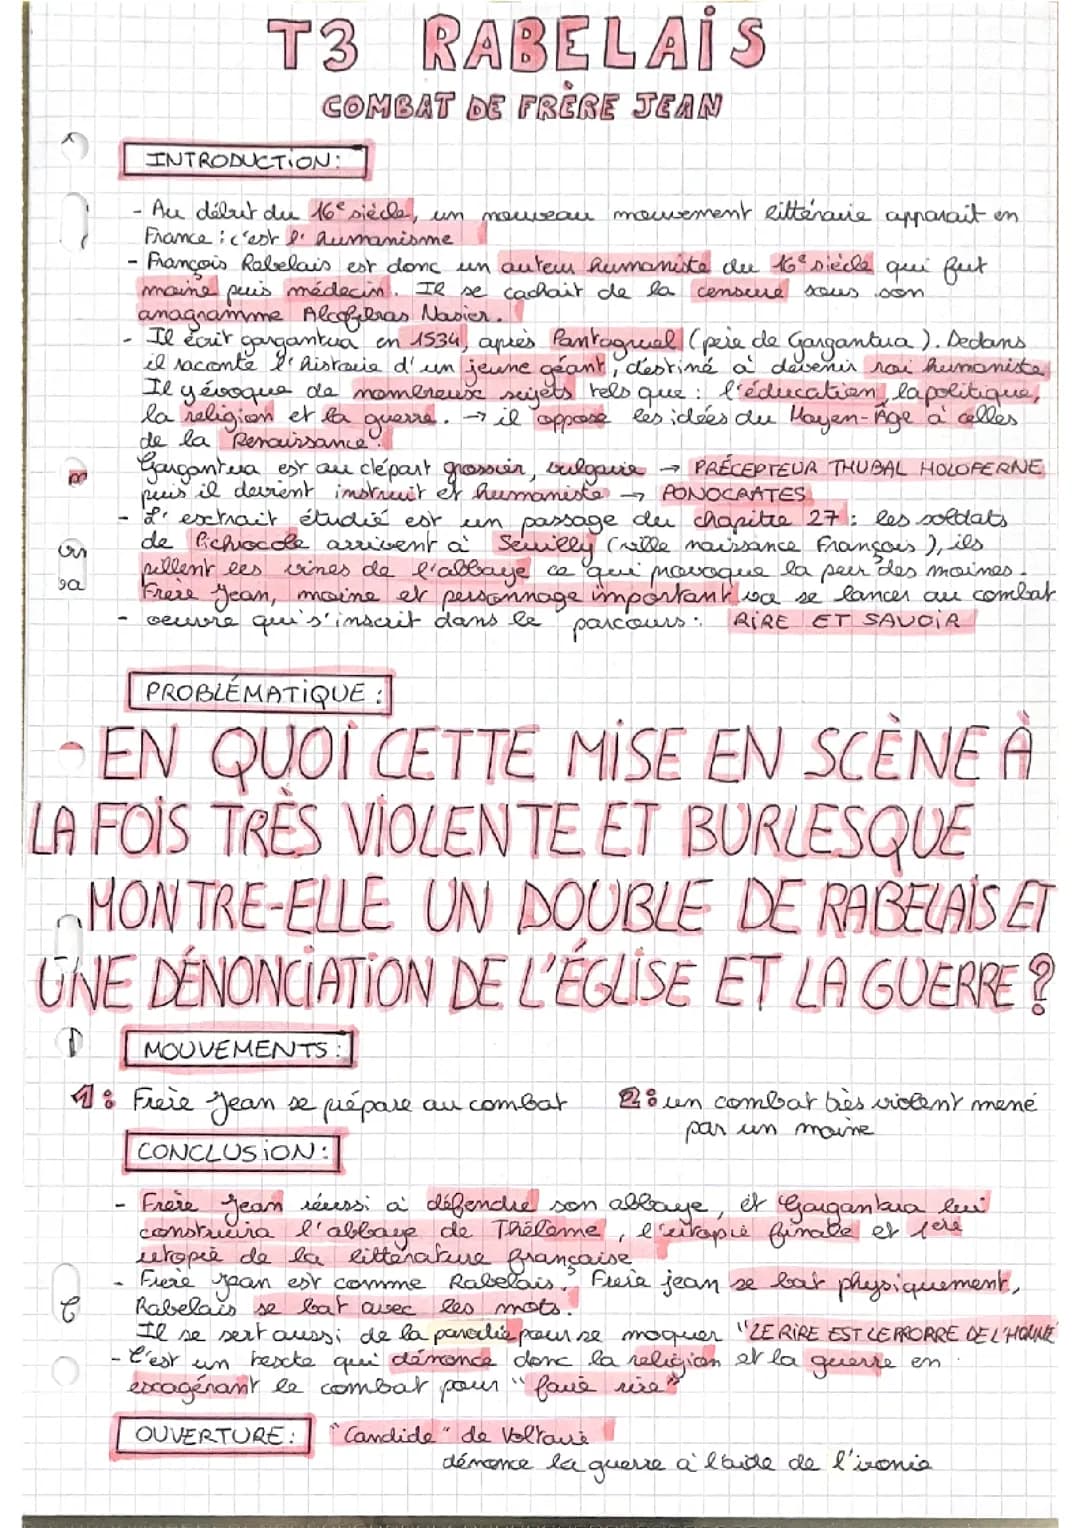 T3 RABELAIS
COMBAT DE FRÈRE JEAN
INTRODUCTION:
- Au début du 16e siècle, un nouveau mouvement littéraire apparait en
France : c'est l'humanisme
- François Rabelais est donc un auteur humaniste du 16e siècle qui fut
moine puis médecin. Il se cachait de la censure sous son
anagramme Alcofibras Nasier.
- Il écrit gargantua en 1534, après Pantagruel (père de Gargantua). Dedans
il raconte l'histoire d'un jeune géant, destiné à devenir roi humaniste
Il y évoque de nombreux sujets tels que : l'éducation, la politique,
la religion et la guerre. → il oppose les idées du Moyen-Âge à celles
de la Renaissance.
Gargantua est au départ grossier, vulgaire → PRÉCEPTEUR THUBAL HOLOFERNE
puis il devient instruit et humaniste → PONOCRATES
- L'extrait étudié est un passage du chapitre 27 : les soldats
de Pichrocole arrivent à Seuilly (ville naissance François), ils
pillent les vines de l'abbaye ce qui provoque la peur des moines.
Frère Jean, moine et personnage important va se lancer au combat
- oeuvre qui s'inscrit dans le parcours : RIRE ET SAVOIR
PROBLÉMATIQUE :
EN QUOI CETTE MISE EN SCÈNE À
LA FOIS TRÈS VIOLENTE ET BURLESQUE
MONTRE-ELLE UN DOUBLE DE RABELAIS ET
UNE DÉNONCIATION DE L'ÉGLISE ET LA GUERRE ?
MOUVEMENTS :
1 : Frère Jean se prépare au combat 2 : un combat très violent mené
par un moine
CONCLUSION :
- Frère Jean réussi à défendre son abbaye, et Gargantua lui
construira l'abbaye de Thélème, l'utopie finale et 1ère
utopie de la littérature française
- Frère Jean est comme Rabelais. Frère jean se bat physiquement,
Rabelais se bat avec les mots.
Il se sert aussi de la parodie pour se moquer "LE RIRE EST LE PROPRE DE L'HOMME"
- C'est un texte qui dénonce donc la religion et la guerre en
exagérant le combat pour "faire rire"
OUVERTURE : "Candide" de Voltaire
dénonce la guerre à l'aide de l'ironie